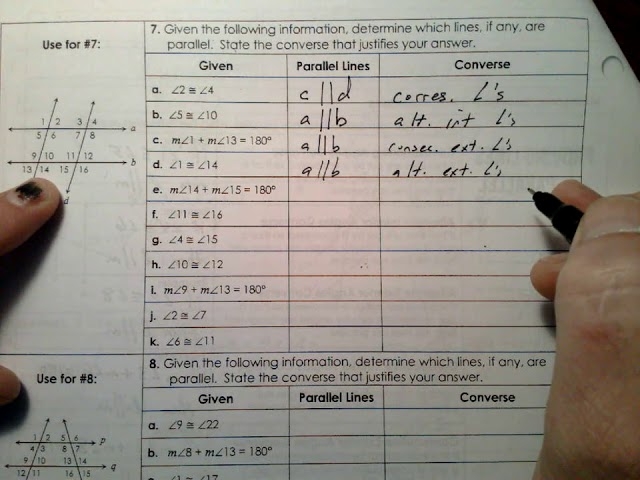 Use for #7:
7. Given the following information, determine which lines, if any, are
parallel. State the converse that justifies your answer.
Given Parallel Lines Converse
a. ∠2 ≅ ∠4 c || d corres. ∠'s
b. ∠5 ≅ ∠10 a || b alt. int ∠'s
c. m∠1 + m∠13 = 180° a || b consec. ext. ∠'s
d. ∠1 ≅ ∠14 a || b alt. ext. ∠'s
e. m∠14 + m∠15 = 180°
f. ∠11 ≅ ∠16
g. ∠4 ≅ ∠15
h. ∠10 ≅ ∠12
i. m∠9 + m∠13 = 180°
j. ∠2 ≅ ∠7
k. ∠6 ≅ ∠11
1 2 3 4
5 6 7 8 a
9 10 11 12
13 14 15 16 b
d
Use for #8:
8. Given the following information, determine which lines, if any, are
parallel. State the converse that justifies your answer.
Given Parallel Lines Converse
a. ∠9 ≅ ∠22
b. m∠8 + m∠13 = 180°
∠1 ≅ ∠17
1 2 5 6 p
4 3 8 7
9 10 13 14 q
12 11 16 15